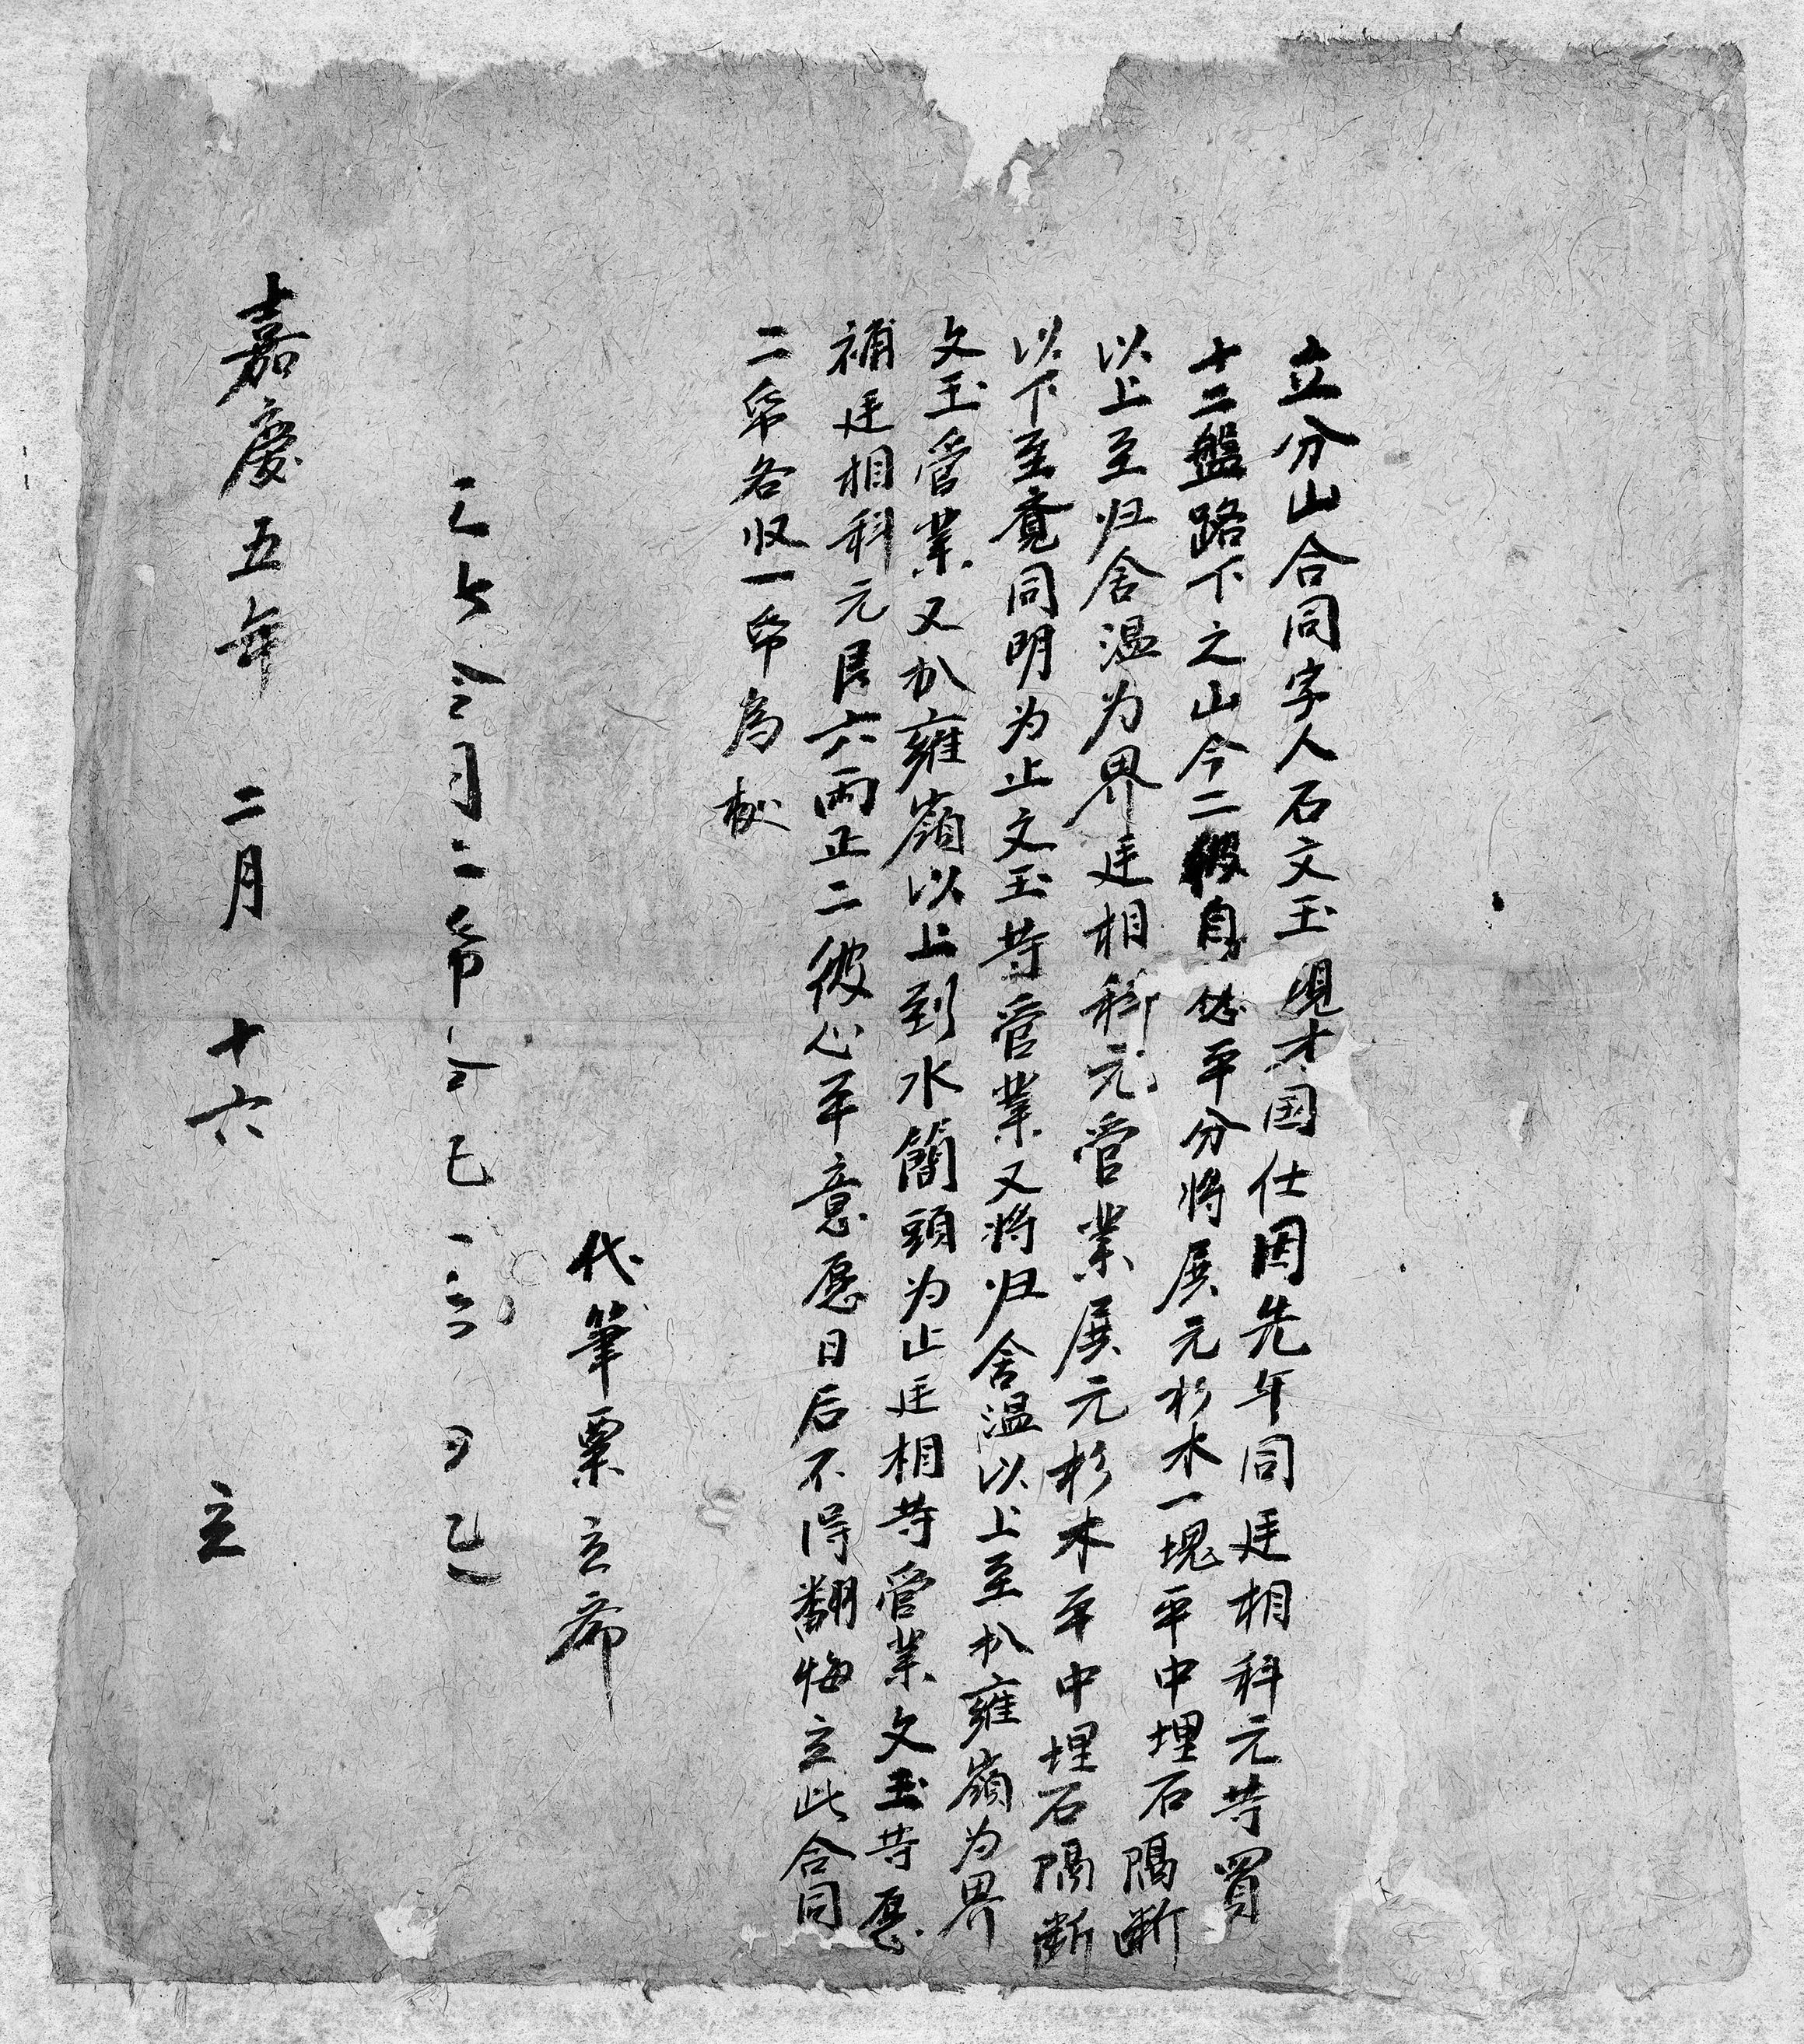 立分山合同字人石文玉現才国仕因先年同廷相科元苻買
十二盤路下之山今二彼自平分将展元杉木一塊平中埋石隔断
以上至归舍温为界廷相科元管業展元杉木平中埋石隔断
以下至竟同明为止文玉苻管業又将归舍温以上至癶雍嶺为界
文玉管業又癶雍嶺以上到水簡頭为止廷相苻管業文玉苻愿
補廷相科元艮六兩正二彼心平意愿日后不得翻悔立此合同
二帋各収一帋為
代筆粟立帝
嘉慶五年二月十六立